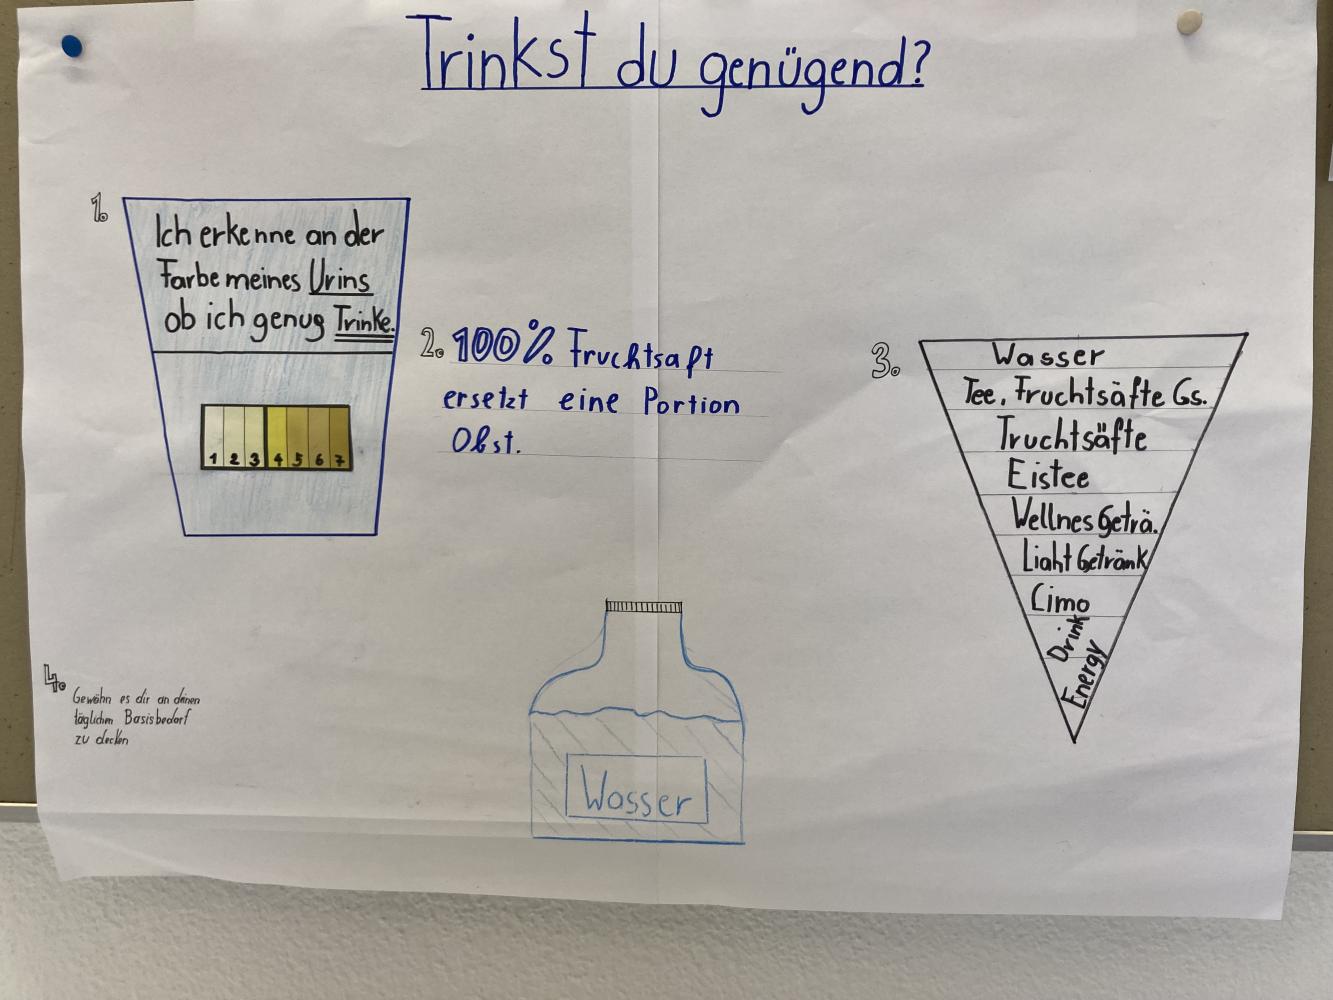 Trinkst du genügend?
1.
Ich erkenne an der
Farbe meines Urins
ob ich genug Trinke.
1 2 3 4 5 6 7
2. 100% Fruchtsaft
ersetzt eine Portion
Obst.
3.
Wasser
Tee, Fruchtsäfte Gs.
Fruchtsäfte
Eistee
Wellnes Geträ.
Liaht Getränk
Limo
Energy Drink
4.
Gewöhn es dir an deinen
täglichen Basisbedarf
zu decken
Wasser